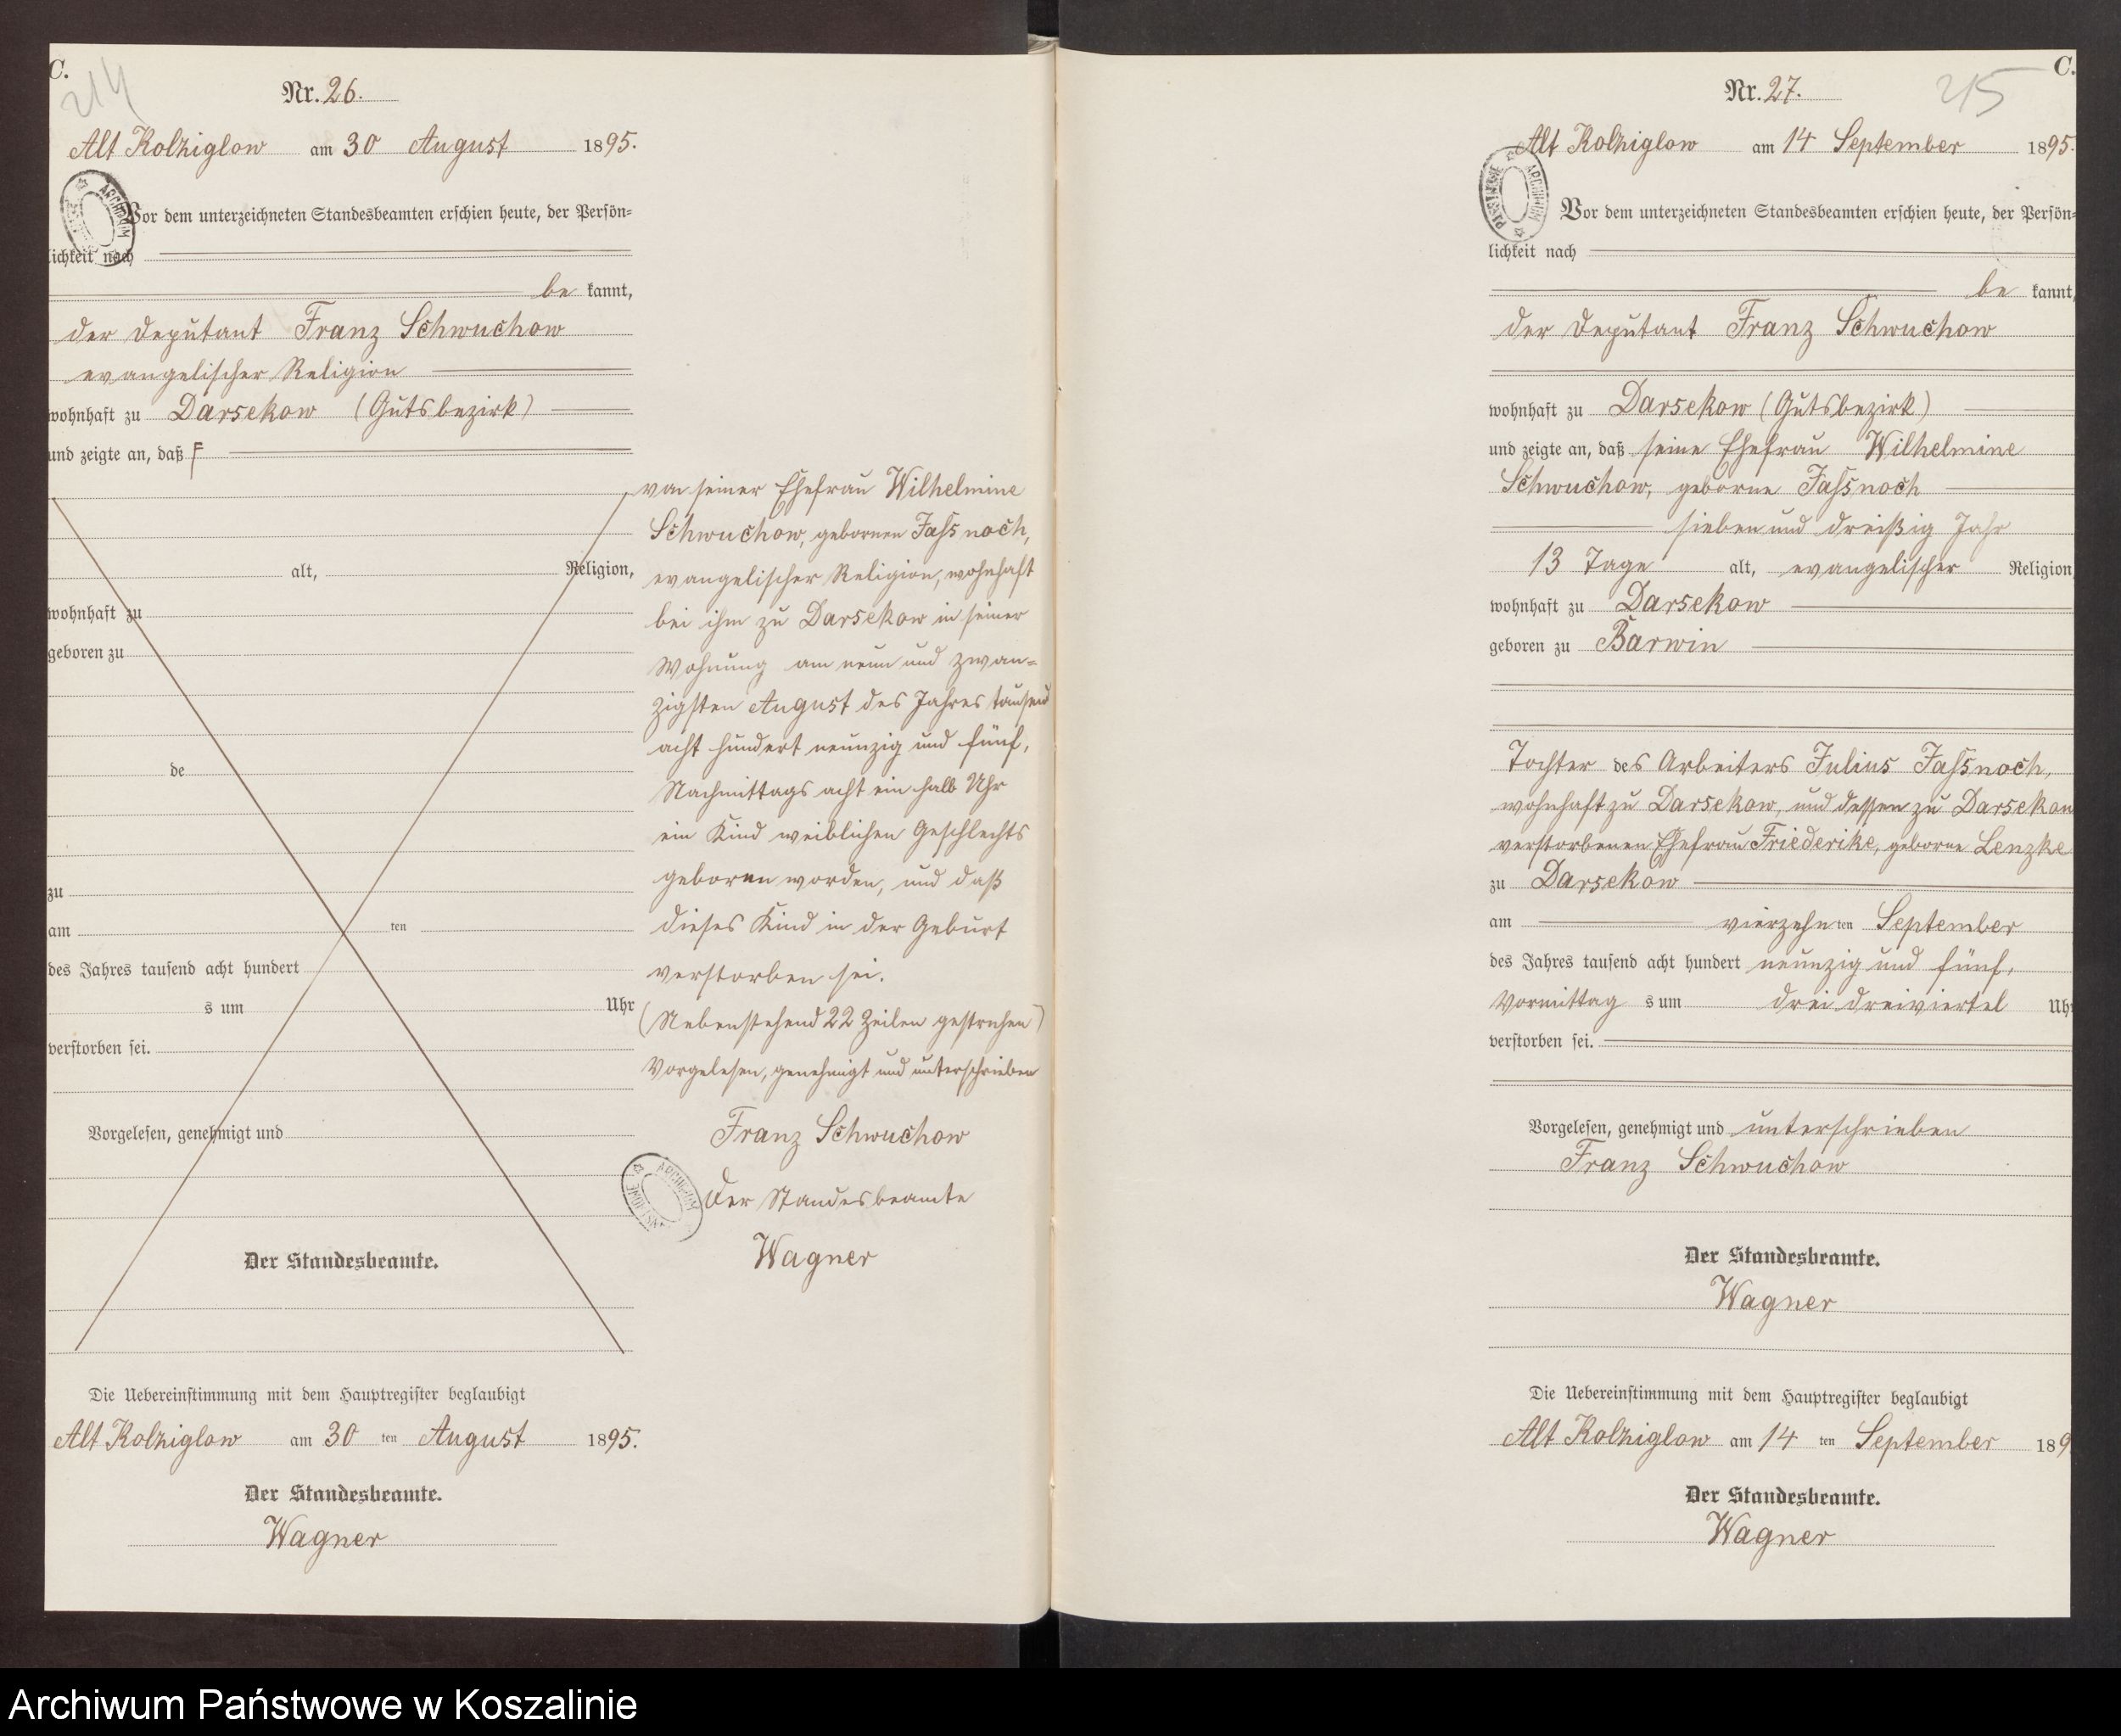 C.
214
Nr. 26.
Alt Kolziglow am 30 August 1895.
Vor dem unterzeichneten Standesbeamten erschien heute, der Persön-
lichkeit nach
be kannt,
der Deputant Franz Schwuchow
evangelischer Religion
wohnhaft zu Darsekow (Gutsbezirk)
und zeigte an, daß F
alt, Religion,
wohnhaft zu
geboren zu
de
zu
am ten
des Jahres tausend acht hundert
s um Uhr
verstorben sei.
Vorgelesen, genehmigt und
Der Standesbeamte.
von seiner Ehefrau Wilhelmine
Schwuchow, gebornen Jassnoch,
evangelischer Religion, wohnhaft
bei ihm zu Darsekow in seiner
Wohnung am neun und zwan-
zigsten August des Jahres tausend
acht hundert neunzig und fünf,
Nachmittags acht ein halb Uhr
ein Kind weiblichen Geschlechts
geboren worden, und daß
dieses Kind in der Geburt
verstorben sei.
(Nebenstehend 22 Zeilen gestrichen)
Vorgelesen, genehmigt und unterschrieben
Franz Schwuchow
Der Standesbeamte
Wagner
ARCHIWUM
Die Uebereinstimmung mit dem Hauptregister beglaubigt
Alt Kolziglow am 30 ten August 1895.
Der Standesbeamte.
Wagner
C.
215
Nr. 27.
Alt Kolziglow am 14 September 1895.
ARCHIWUM
Vor dem unterzeichneten Standesbeamten erschien heute, der Persön-
lichkeit nach
be kannt,
der Deputant Franz Schwuchow
wohnhaft zu Darsekow (Gutsbezirk)
und zeigte an, daß seine Ehefrau Wilhelmine
Schwuchow, geborne Jassnoch
sieben und dreißig Jahr
13 Tage alt, evangelischer Religion
wohnhaft zu Darsekow
geboren zu Barwin
Tochter des Arbeiters Julius Jassnoch,
wohnhaft zu Darsekow, und dessen zu Darsekow
verstorbenen Ehefrau Friederike, geborne Lenzke
zu Darsekow
am vierzehn ten September
des Jahres tausend acht hundert neunzig und fünf,
Vormittag s um drei dreiviertel Uhr
verstorben sei.
Vorgelesen, genehmigt und unterschrieben
Franz Schwuchow
Der Standesbeamte.
Wagner
Die Uebereinstimmung mit dem Hauptregister beglaubigt
Alt Kolziglow am 14 ten September 189
Der Standesbeamte.
Wagner
Archiwum Państwowe w Koszalinie